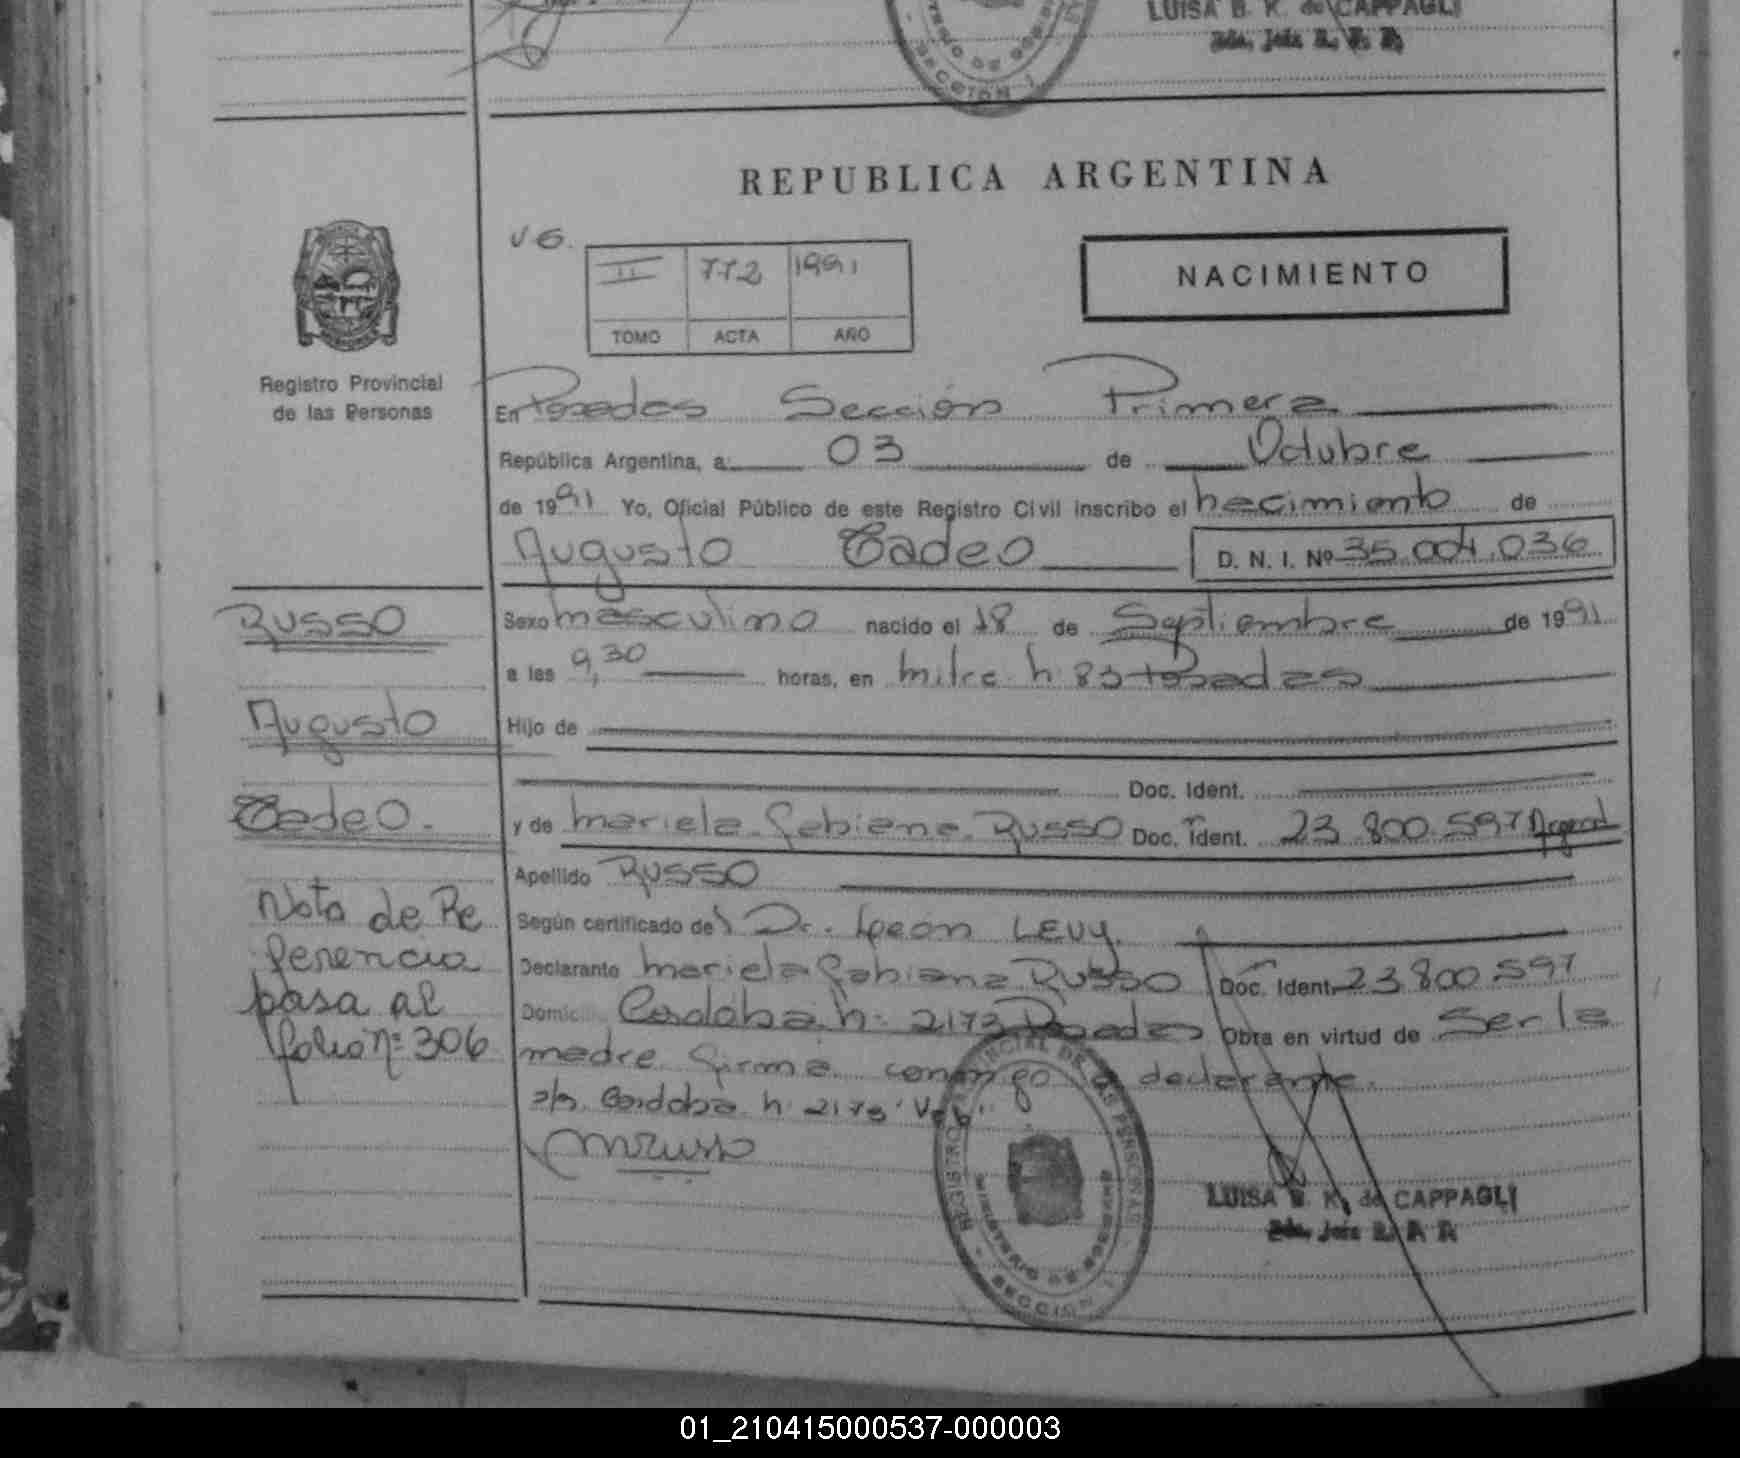 LUISA B. K. de CAPPAGLI
REPUBLICA ARGENTINA
V6.
II 772 1991
TOMO ACTA AÑO
NACIMIENTO
Registro Provincial
de las Personas
En Posadas Sección Primera
República Argentina, a 03 de Octubre
de 1991 Yo, Oficial Público de este Registro Civil inscribo el nacimiento de
Augusto Tadeo D. N. I. Nº 35.004.036
RUSSO
Augusto
Tadeo.
Nota de Re
ferencia
pasa al
folio nº 306
Sexo masculino nacido el 18 de Septiembre de 1991
a las 9,30 horas, en mitre n 83 Posadas
Hijo de
Doc. Ident.
y de mariela fabiana RUSSO Doc. Ident. 23 800 597 Argent
Apellido RUSSO
Según certificado del Dr. León LEVY.
Declarante mariela fabiana RUSSO Doc. Ident. 23 800 597
Domic Cordoba n: 2173 Posadas Obra en virtud de Ser la
madre firma conmigo la declarante.
Cordoba n: 2173
mrusso
REGISTRO PROVINCIAL DE LAS PERSONAS
MINISTERIO DE GOBIERNO
SECCION 1
LUISA B. K. de CAPPAGLI
01_210415000537-000003